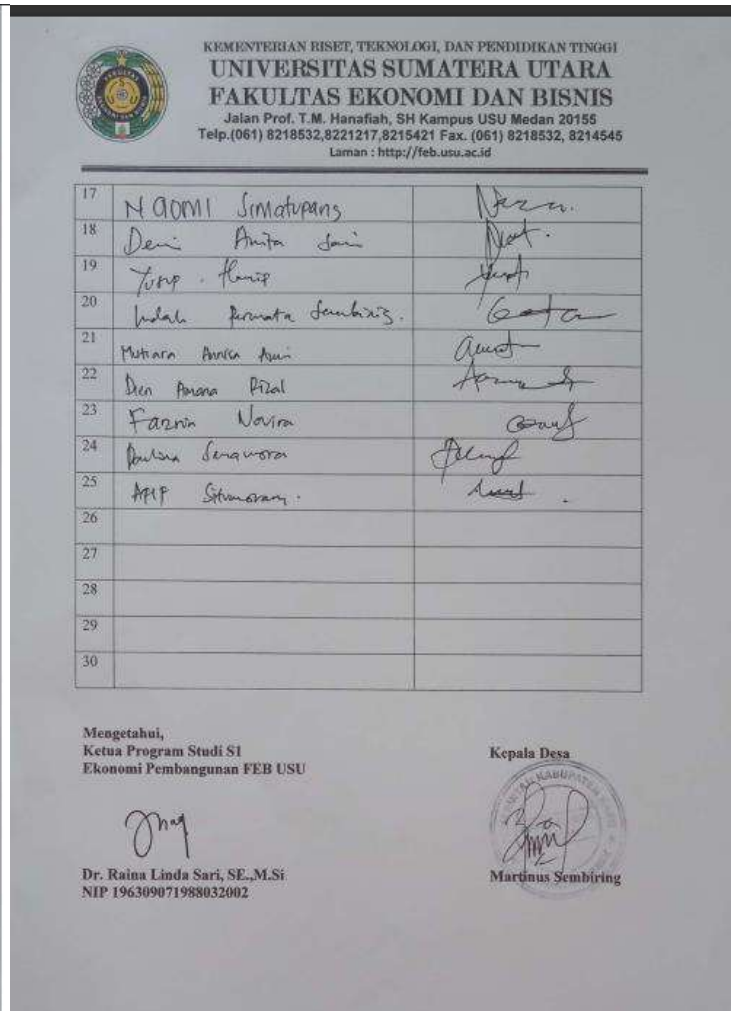 KEMENTERIAN RISET, TEKNOLOGI, DAN PENDIDIKAN TINGGI
UNIVERSITAS SUMATERA UTARA
FAKULTAS EKONOMI DAN BISNIS
Jalan Prof. T.M. Hanafiah, SH Kampus USU Medan 20155
Telp.(061) 8218532,8221217,8215421 Fax. (061) 8218532, 8214545
Laman : http://feb.usu.ac.id
17 Naomi Simatupang
18 Deni Anita Sari
19 Yusup . Hanip
20 Indah Permata Sembiring.
21 Mutiara Annisa
22 Dien Amana Rizal
23 Fazrin Novira
24
25 Apip Situmorang.
26
27
28
29
30
Mengetahui,
Ketua Program Studi S1
Ekonomi Pembangunan FEB USU
Kepala Desa
Dr. Raina Linda Sari, SE.,M.Si
NIP 196309071988032002
Martinus Sembiring